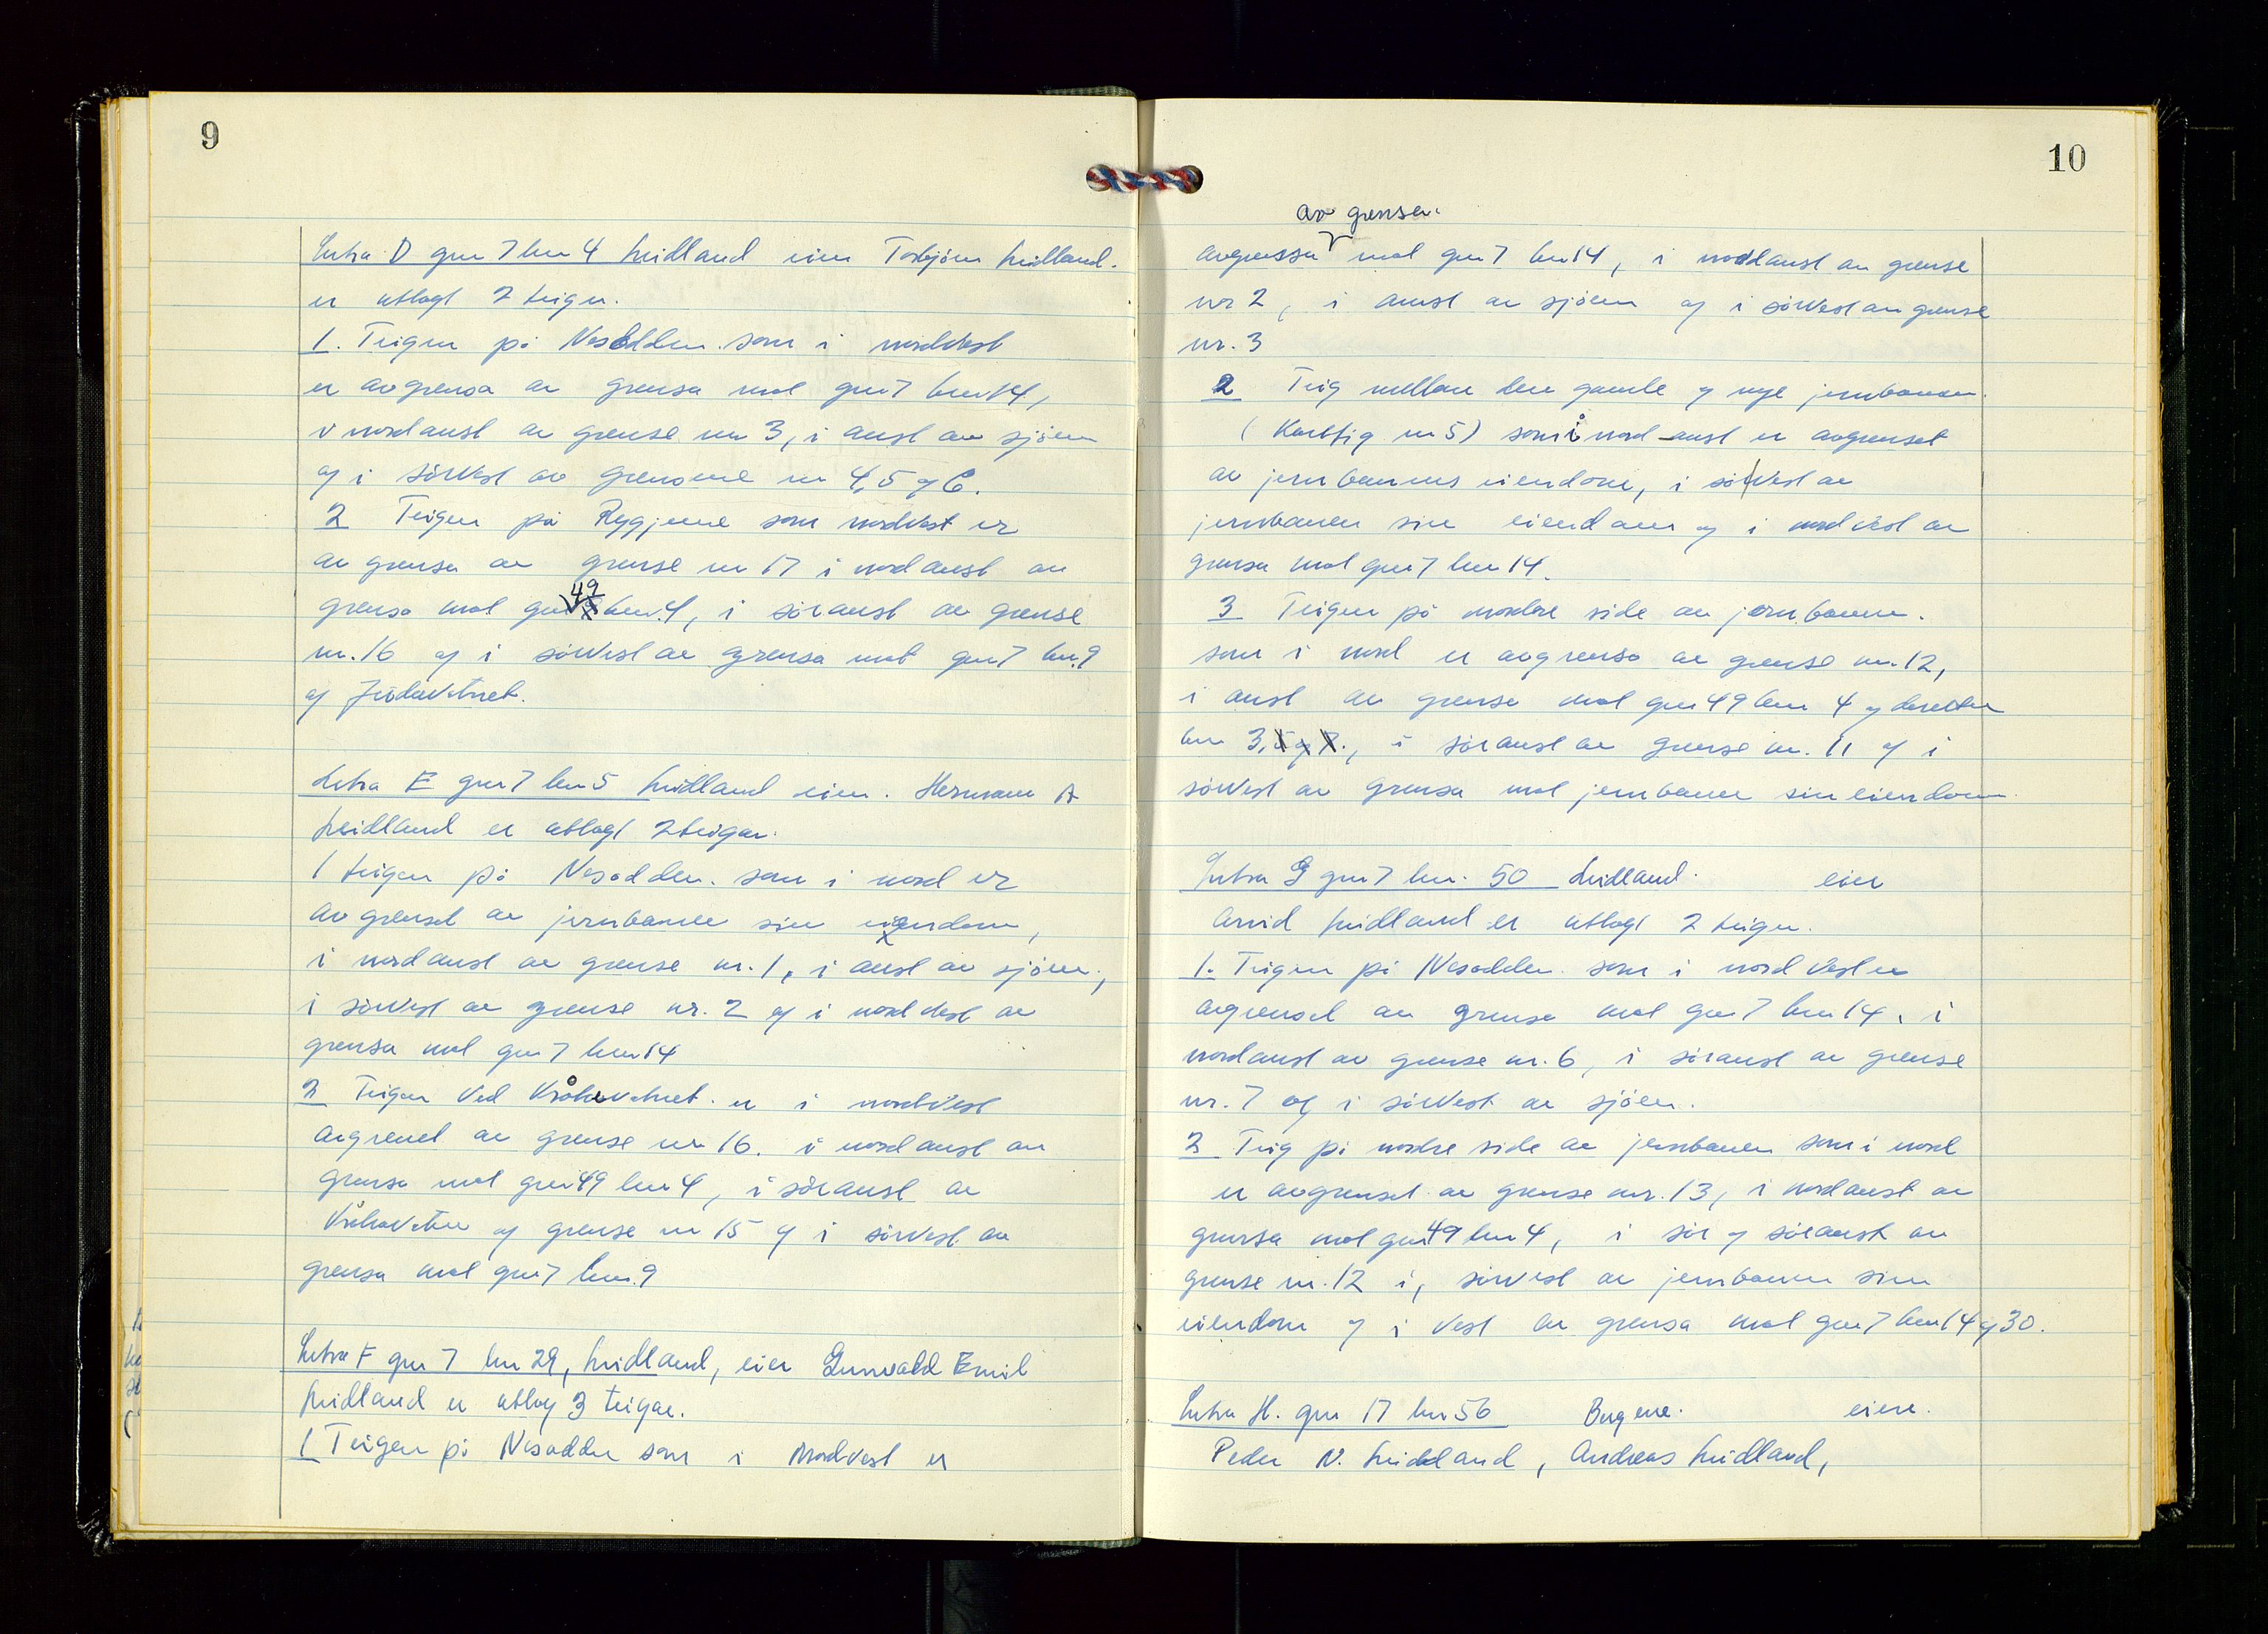 9
Litra D gnr 7 bnr 4 Leidland eier Torbjörn Leidland.
er utlagt 2 teiger.
1. Teigen på Nesodden som i nordvest
er avgrensa av grensa mot gnr 7 bnr 14,
i nordaust av grense nr 3, i aust av sjöen
og i sörvest av grensene nr 4, 5 og 6.
2 Teigen på Ryggjene som nordvest er
avgrensa av grense nr 17 i nordaust av
grensa mot gnr 49 bnr. 4, i söraust av grense
nr. 16 og i sörvest av grensa mot gnr 7 bnr. 9
og
Litra E gnr 7 bnr 5 Leidland eier. Hermann A
Leidland er utlagt 2 teigar.
1 teigen på Nesodden. som i nord er
avgrenset av jernbanen sin eiendom,
i nordaust av grense nr. 1, i aust av sjöen,
i sörvest av grense nr. 2 og i nordvest av
grensa mot gnr 7 bnr 14
2 Teigen ved Kråkevatnet. er i nordvest
avgrenset av grense nr 16. i nordaust av
grensa mot gnr 49 bnr 4, i söraust av
Kråkevatnet og grense nr 15 og i sörvest av
grensa mot gnr 7 bnr. 9
Litra F gnr 7 bnr 29, Leidland, eier Gunvald Emil
Leidland er utlag 3 teigar.
1 Teigen på Nesodden som i Nordvest er
10
av grensen.
avgrenssa mot gnr 7 bnr 14, i nordaust av grense
nr 2, i aust av sjöen og i sörvest av grense
nr. 3
2 Teig mellom den gamle og nye jernbanen
(Kartfig nr 5) som i nord-aust er avgrenset
av jernbanens eiendom, i sörvest av
jernbanen sin eiendom og i nordvest av
grensa mot gnr 7 bnr 14.
3 Teigen på nordre side av jernbanen.
som i nord er avgrensa av grense nr. 12,
i aust av grensa mot gnr 49 bnr 4 og deretter
bnr 3, 5 og 7., i söraust av grense nr. 11 og i
sörvest av grensa mot jernbanen sin eiendom.
Litra G gnr 7 bnr. 50 Leidland. eier
Arvid Leidland er utlagt 2 teiger.
1. Teigen på Nesodden som i nordvest er
avgrenset av grensa mot gnr 7 bnr 14. i
nordaust av grense nr. 6, i söraust av grense
nr. 7 og i sörvest av sjöen.
2 Teig på nordre side av jernbanen som i nord
er avgrenset av grense nr. 13, i nordaust av
grensa mot gnr 49 bnr 4, i sör og söraust av
grense nr. 12 i, sörvest av jernbanen sin
eiendom og i vest av grensa mot gnr 7 bnr 14 og 30.
Litra H. gnr 17 bnr 56 Bergene. eiere.
Peder N. Leidland, Andreas Leidland,